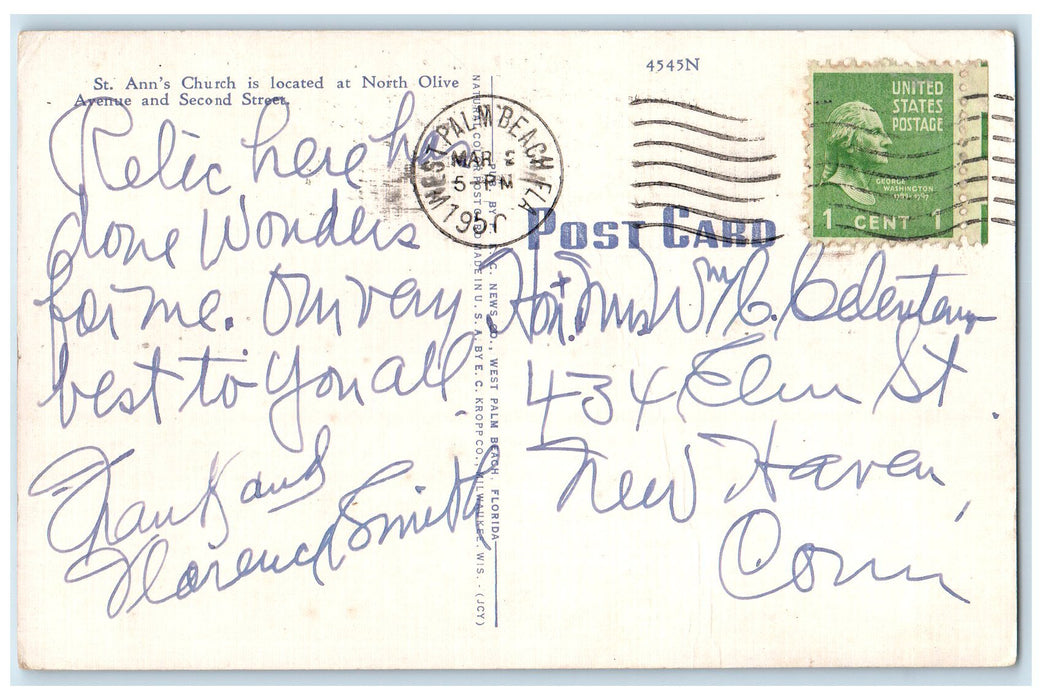 St. Ann's Church is located at North Olive
Avenue and Second Street.
Relic here has
done wonders
for me. Our very
best to you all.
Frank and
Florence Smith
NATURAL COLOR POST CARD MADE IN U. S. A. BY E. C. KROPP CO., MILWAUKEE, WIS. (JCY)
PUB. BY F. E. C. NEWS CO., WEST PALM BEACH, FLORIDA
4545N
WEST PALM BEACH, FLA.
MAR
5 - PM
195
UNITED
STATES
POSTAGE
GEORGE
WASHINGTON
1789-1797
1 CENT 1
POST CARD
Hon. + Mrs Wm C. Celentano
434 Elm St.
New Haven,
Conn